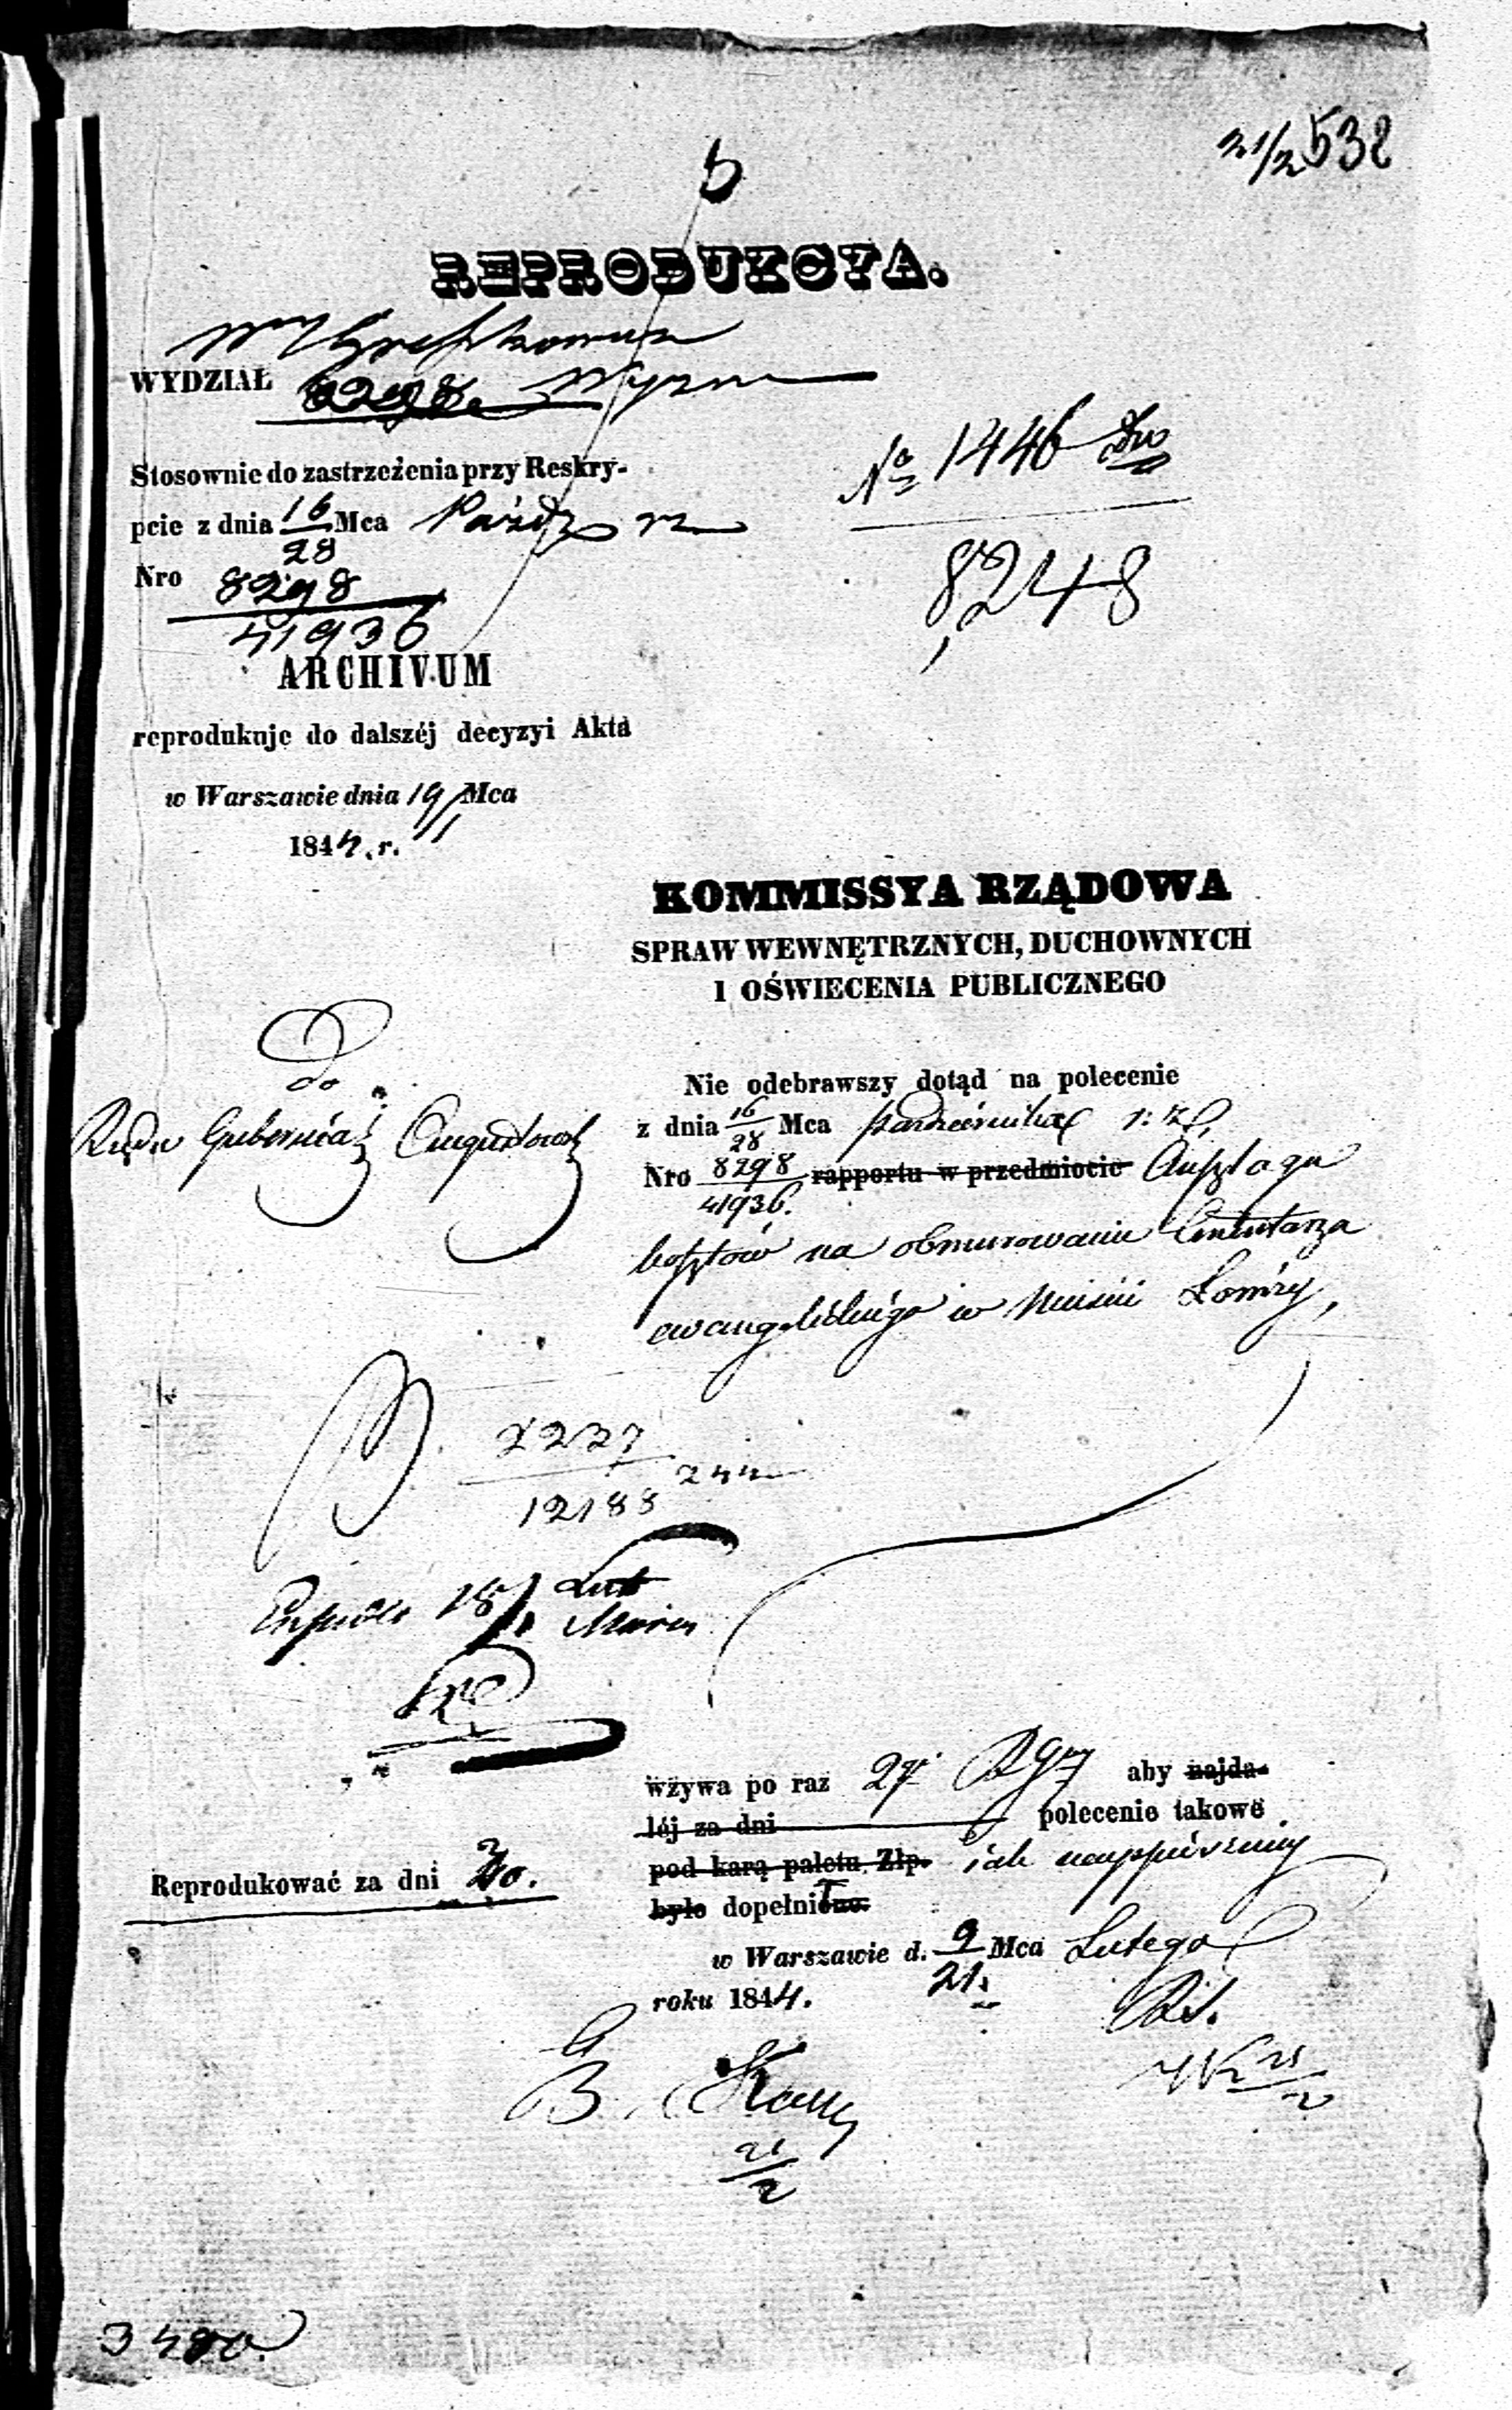 21/2 532
REPRODUKCYA.
WYDZIAŁ 8298. Wyzn
Stosownie do zastrzeżenia przy Reskry-
pcie z dnia 16/28 Mca Paźdz
Nro 8298/41936
No 1446
8,248
ARCHIVUM
reprodukuje do dalszéj decyzyi Akta
w Warszawie dnia 19/1 Mca
1844. r.
KOMMISSYA RZĄDOWA
SPRAW WEWNĘTRZNYCH, DUCHOWNYCH
I OŚWIECENIA PUBLICZNEGO
Do
Rządu Gubernial Augustows
Nie odebrawszy dotąd na polecenie
z dnia 16/28 Mca Października r: z.
Nro 8298/41936. rapportu w przedmiocie Anszlagu
kosztów na obmurowanie Cmentarza
ewangelickiego w Mieście Łomży,
2227
12188 244
18/1 Lut
Marca
wzywa po raz 2gi Rząd aby najda-
léj za dni polecenie takowe
pod karą paletu Złp. jak najspieszniej
było dopełnione.
Reprodukować za dni 20.
w Warszawie d. 9/21. Mca Lutego
roku 1844.
21/2
21/2